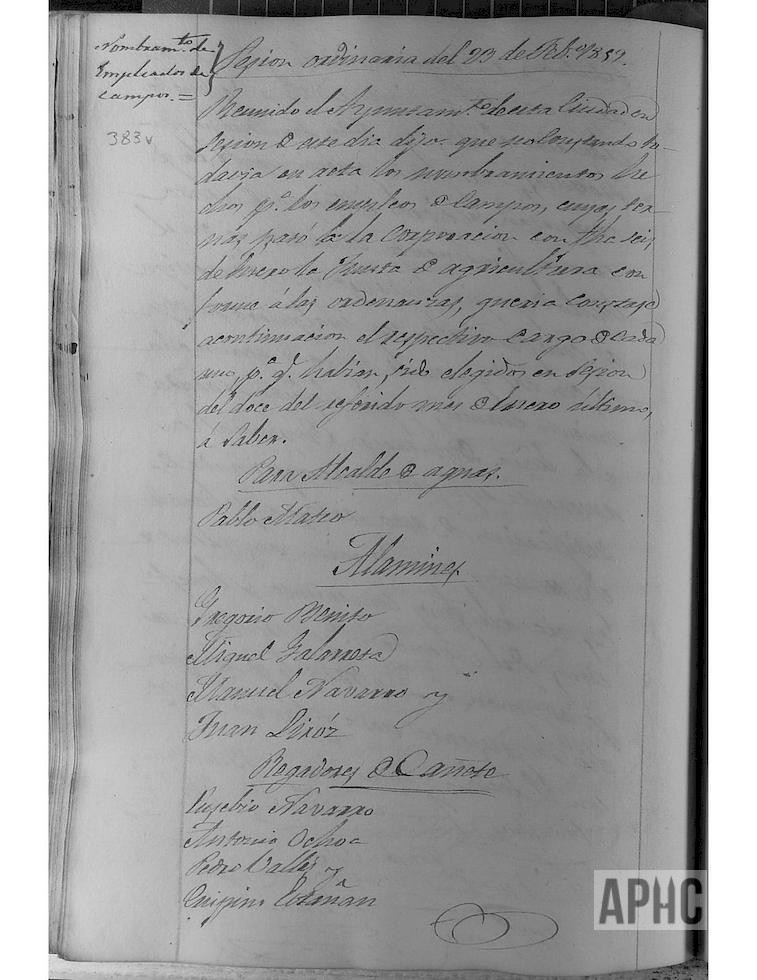 Nombram.to de
Empleados de
campos. =
383v
Sesion ordinaria del 23 de Feb.o 1859.
Reunido el Ayuntam.to de esta Ciudad en
sesion de este dia dijo: que no constando to-
davia en acta los nombramientos he
chos p.a los empleos de Campos, cuyas ter-
nas pasó a la Corporacion con fha seis
de Enero la Junta de agricultura con
forme á las ordenanzas, queria constase
acontinuacion el respectivo cargo de cada
uno, p.a q.e habian sido elegidos en sesion
del doce del referido mes de Enero último,
á saber.
Para Alcalde de aguas.
Pablo Mateo
Alamines
Gregorio Benito
Miguel Galarreta
Manuel Navarro y
Juan Liróz
Regadores de Cañete
Eusebio Navarro
Antonio Ochoa
Pedro Valles y
APHC